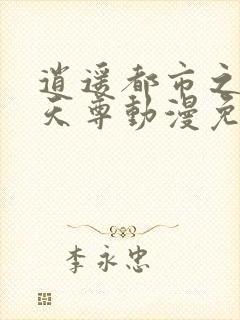 逍遥都市之
天尊動漫免
李永忠